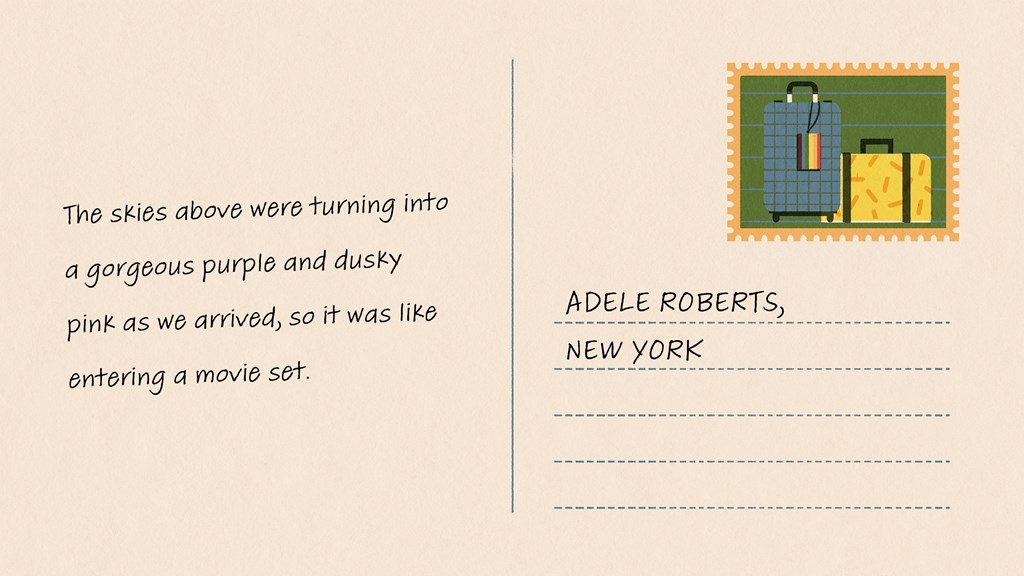 The skies above were turning into
a gorgeous purple and dusky
pink as we arrived, so it was like
entering a movie set.
ADELE ROBERTS,
NEW YORK